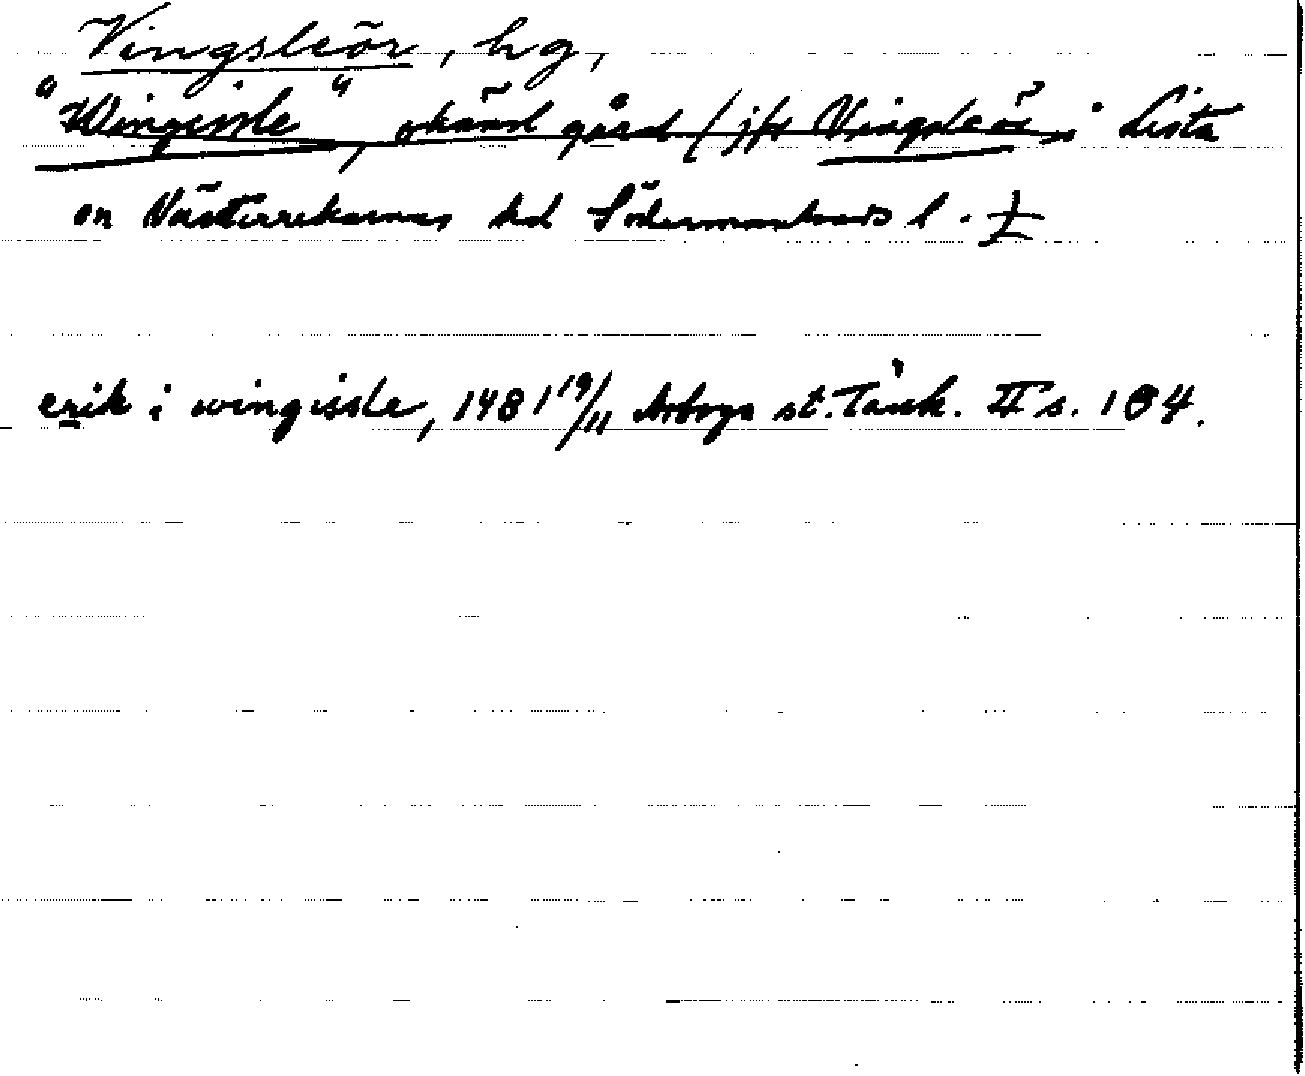 Vingsleör, hg,
"Wingisle", okänd gård (jfr Vingsleör i Lista
sn Västerrekarnas hd Södermanlands l.
erik i wingisle, 1481 19/11 Arboga st. Tänk. II s. 184.